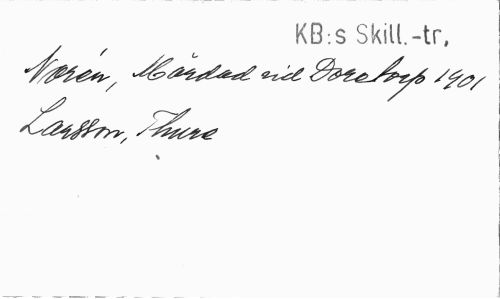 KB:s Skill.-tr.
Norén, Mördad vid Dorotorp 1901
Larsson, Thure